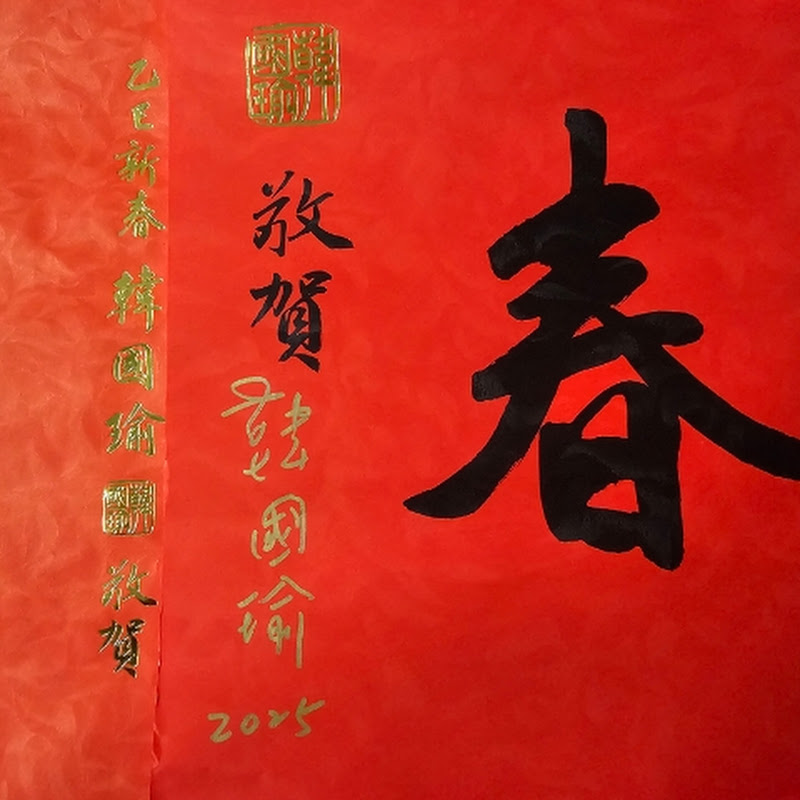 春
韓國瑜
敬賀
韓國瑜
2025
乙巳新春 韓國瑜
韓國瑜
敬賀